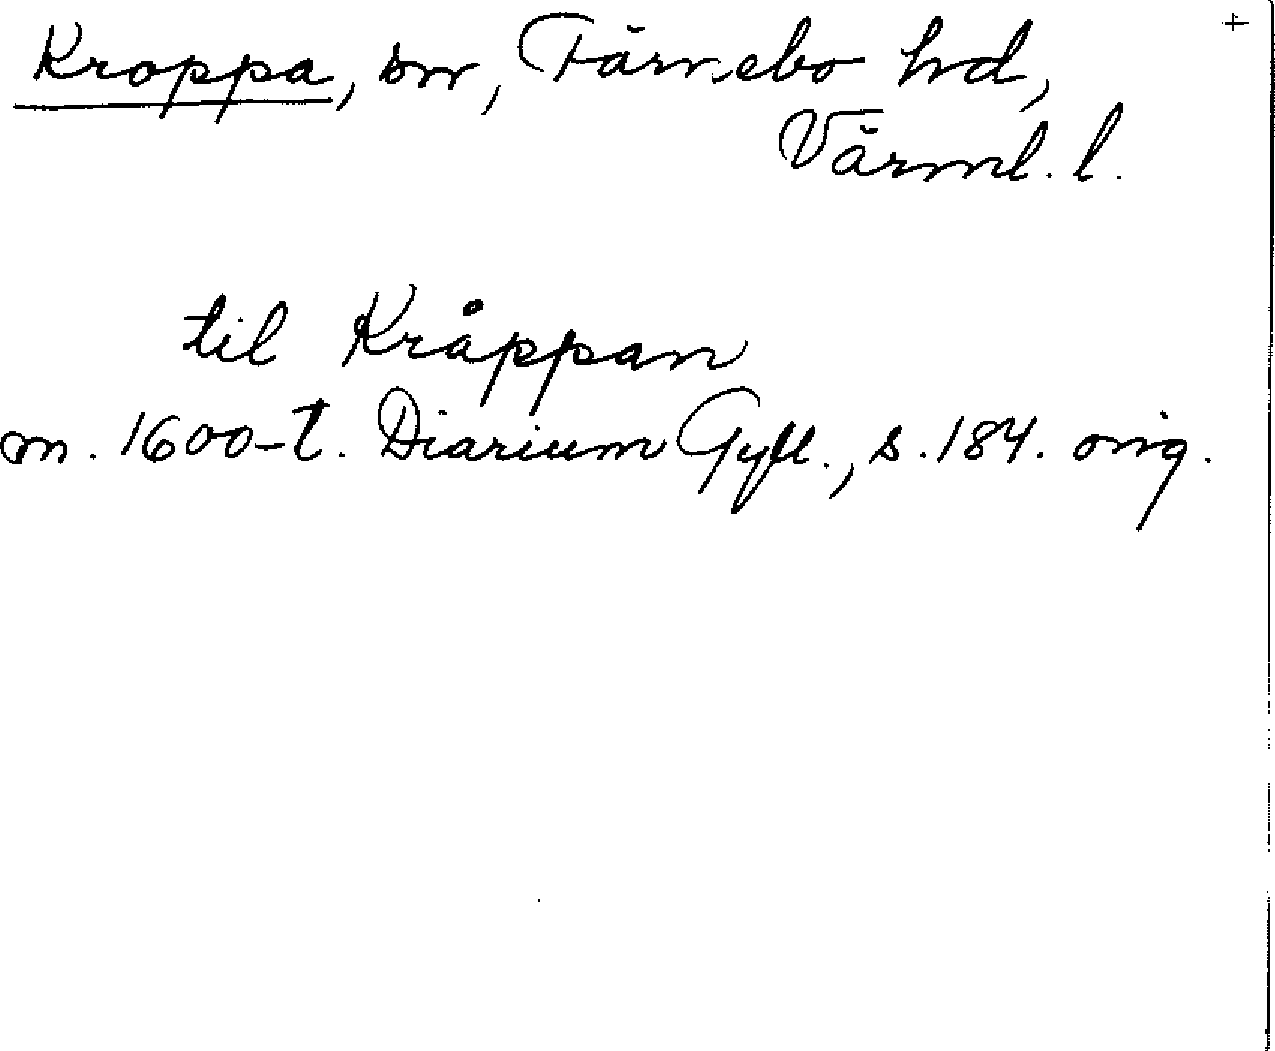 Kroppa, sn, Färnebo hd, +
Värml. l.
til Kråppan
m. 1600-t. Diarium Gyll., s. 184. orig.